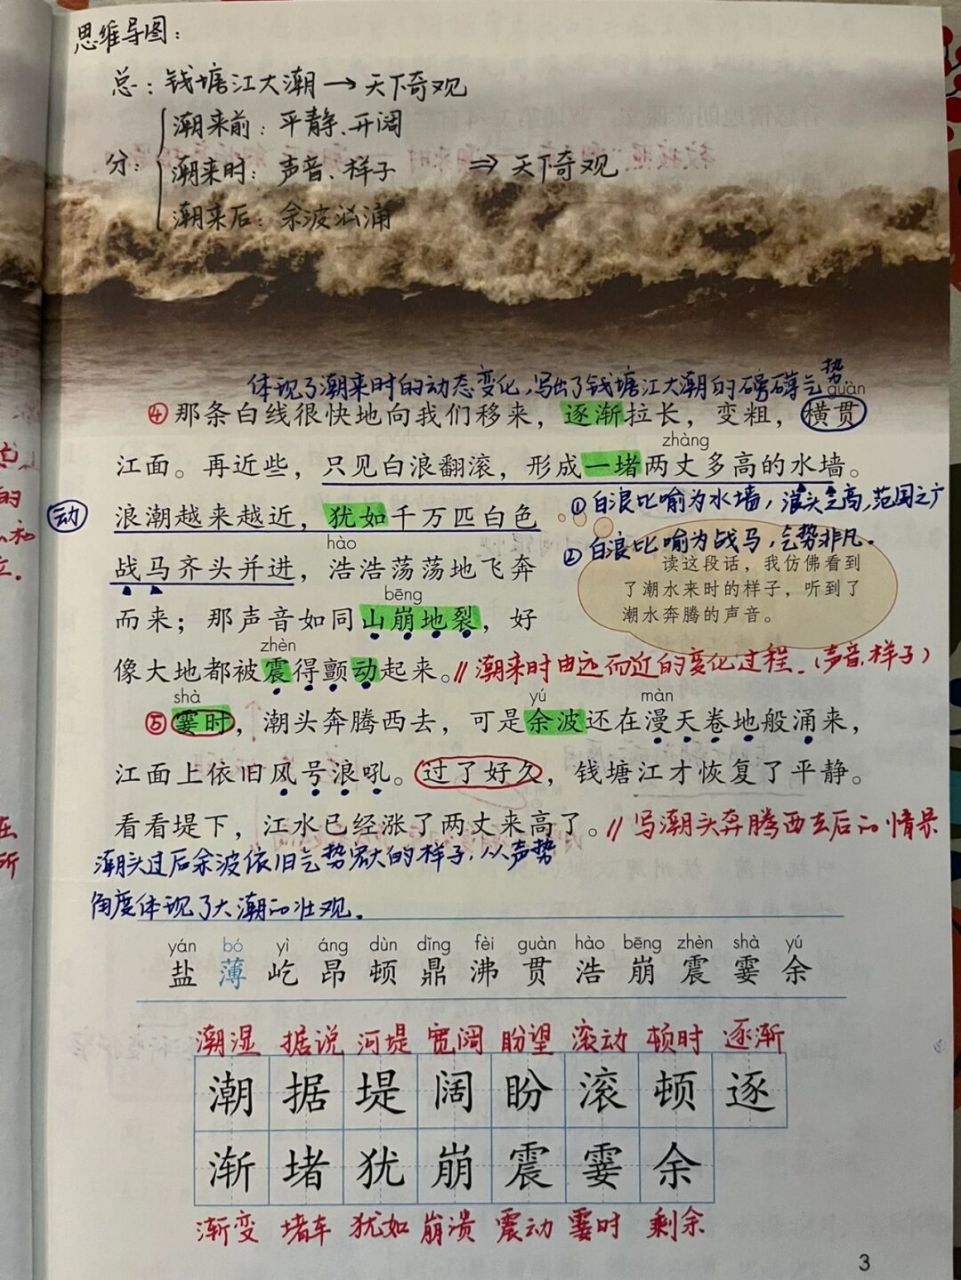 思维导图：
总：钱塘江大潮→天下奇观
分：
潮来前：平静、开阔
潮来时：声音、样子
潮来后：余波汹涌
⇒天下奇观
体现了潮来时的动态变化，写出了钱塘江大潮的磅礴气势
guàn
④那条白线很快地向我们移来，逐渐拉长，变粗，横贯
zhàng
江面。再近些，只见白浪翻滚，形成一堵两丈多高的水墙。
①白浪比喻为水墙，浪头之高，范围之广
动
浪潮越来越近，犹如千万匹白色
②白浪比喻为战马，气势非凡。
hào
战马齐头并进，浩浩荡荡地飞奔
读这段话，我仿佛看到
了潮水来时的样子，听到了
潮水奔腾的声音。
bēng
而来；那声音如同山崩地裂，好
zhèn
像大地都被震得颤动起来。∥潮来时由远而近的变化过程.（声音、样子）
shà yú màn
⑤霎时，潮头奔腾西去，可是余波还在漫天卷地般涌来，
江面上依旧风号浪吼。过了好久，钱塘江才恢复了平静。
看看堤下，江水已经涨了两丈来高了。∥写潮头奔腾西去后的情景
潮头过后余波依旧气势宏大的样子，从声势
角度体现了大潮的壮观.
yán bó yì áng dùn dǐng fèi guàn hào bēng zhèn shà yú
盐 薄 屹 昂 顿 鼎 沸 贯 浩 崩 震 霎 余
潮湿 据说 河堤 宽阔 盼望 滚动 顿时 逐渐
潮 据 堤 阔 盼 滚 顿 逐
渐 堵 犹 崩 震 霎 余
渐变 堵车 犹如 崩溃 震动 霎时 剩余
3